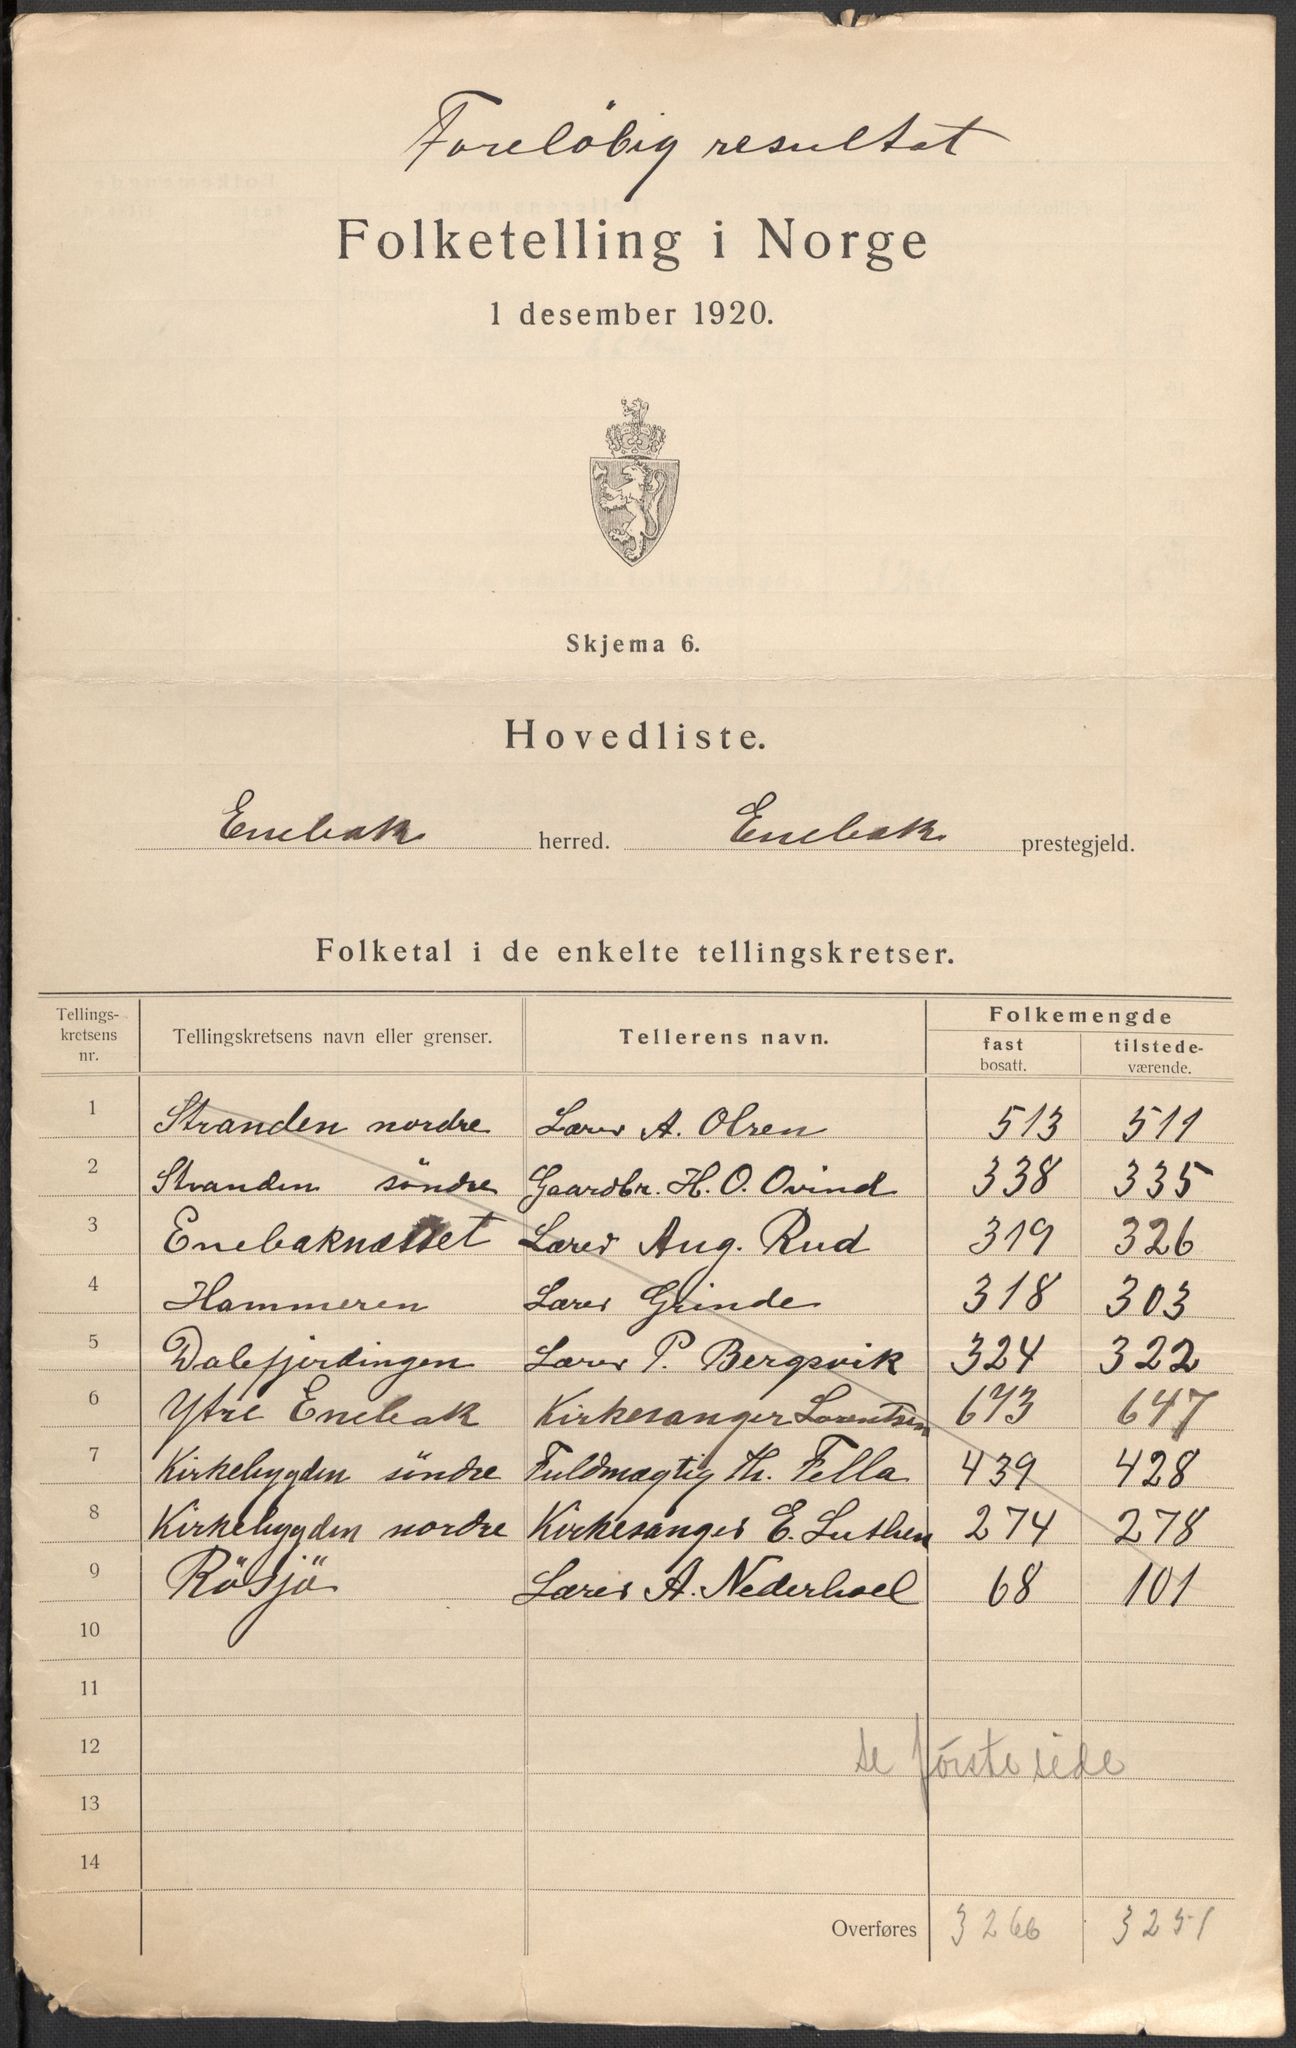 Foreløbig resultat
Folketelling i Norge
1 desember 1920.
Skjema 6.
Hovedliste.
Enebak herred. Enebak prestegjeld.
Folketal i de enkelte tellingskretser.
Tellings-kretsens nr. Tellingskretsens navn eller grenser. Tellerens navn. Folkemengde
fast bosatt. tilstede-værende.
1 Stranden nordre Lærer A. Olsen 513 511
2 Stranden söndre Gaardbr. H. O. Ovind 338 335
3 Enebaknæsset Lærer Aug. Rud 319 326
4 Hammeren Lærer Grinde 318 303
5 Dalefjerdingen Lærer P. Bergsvik 324 322
6 Ytre Enebak Kirkesanger Lorentsen 673 647
7 Kirkebygden söndre Fuldmægtig Th. Fella 439 428
8 Kirkebygden nordre Kirkesanger E. Luthen 274 278
9 Rösjö Lærer A. Nederhoel 68 101
10
11
12 se første side
13
14
Overføres 3266 3251